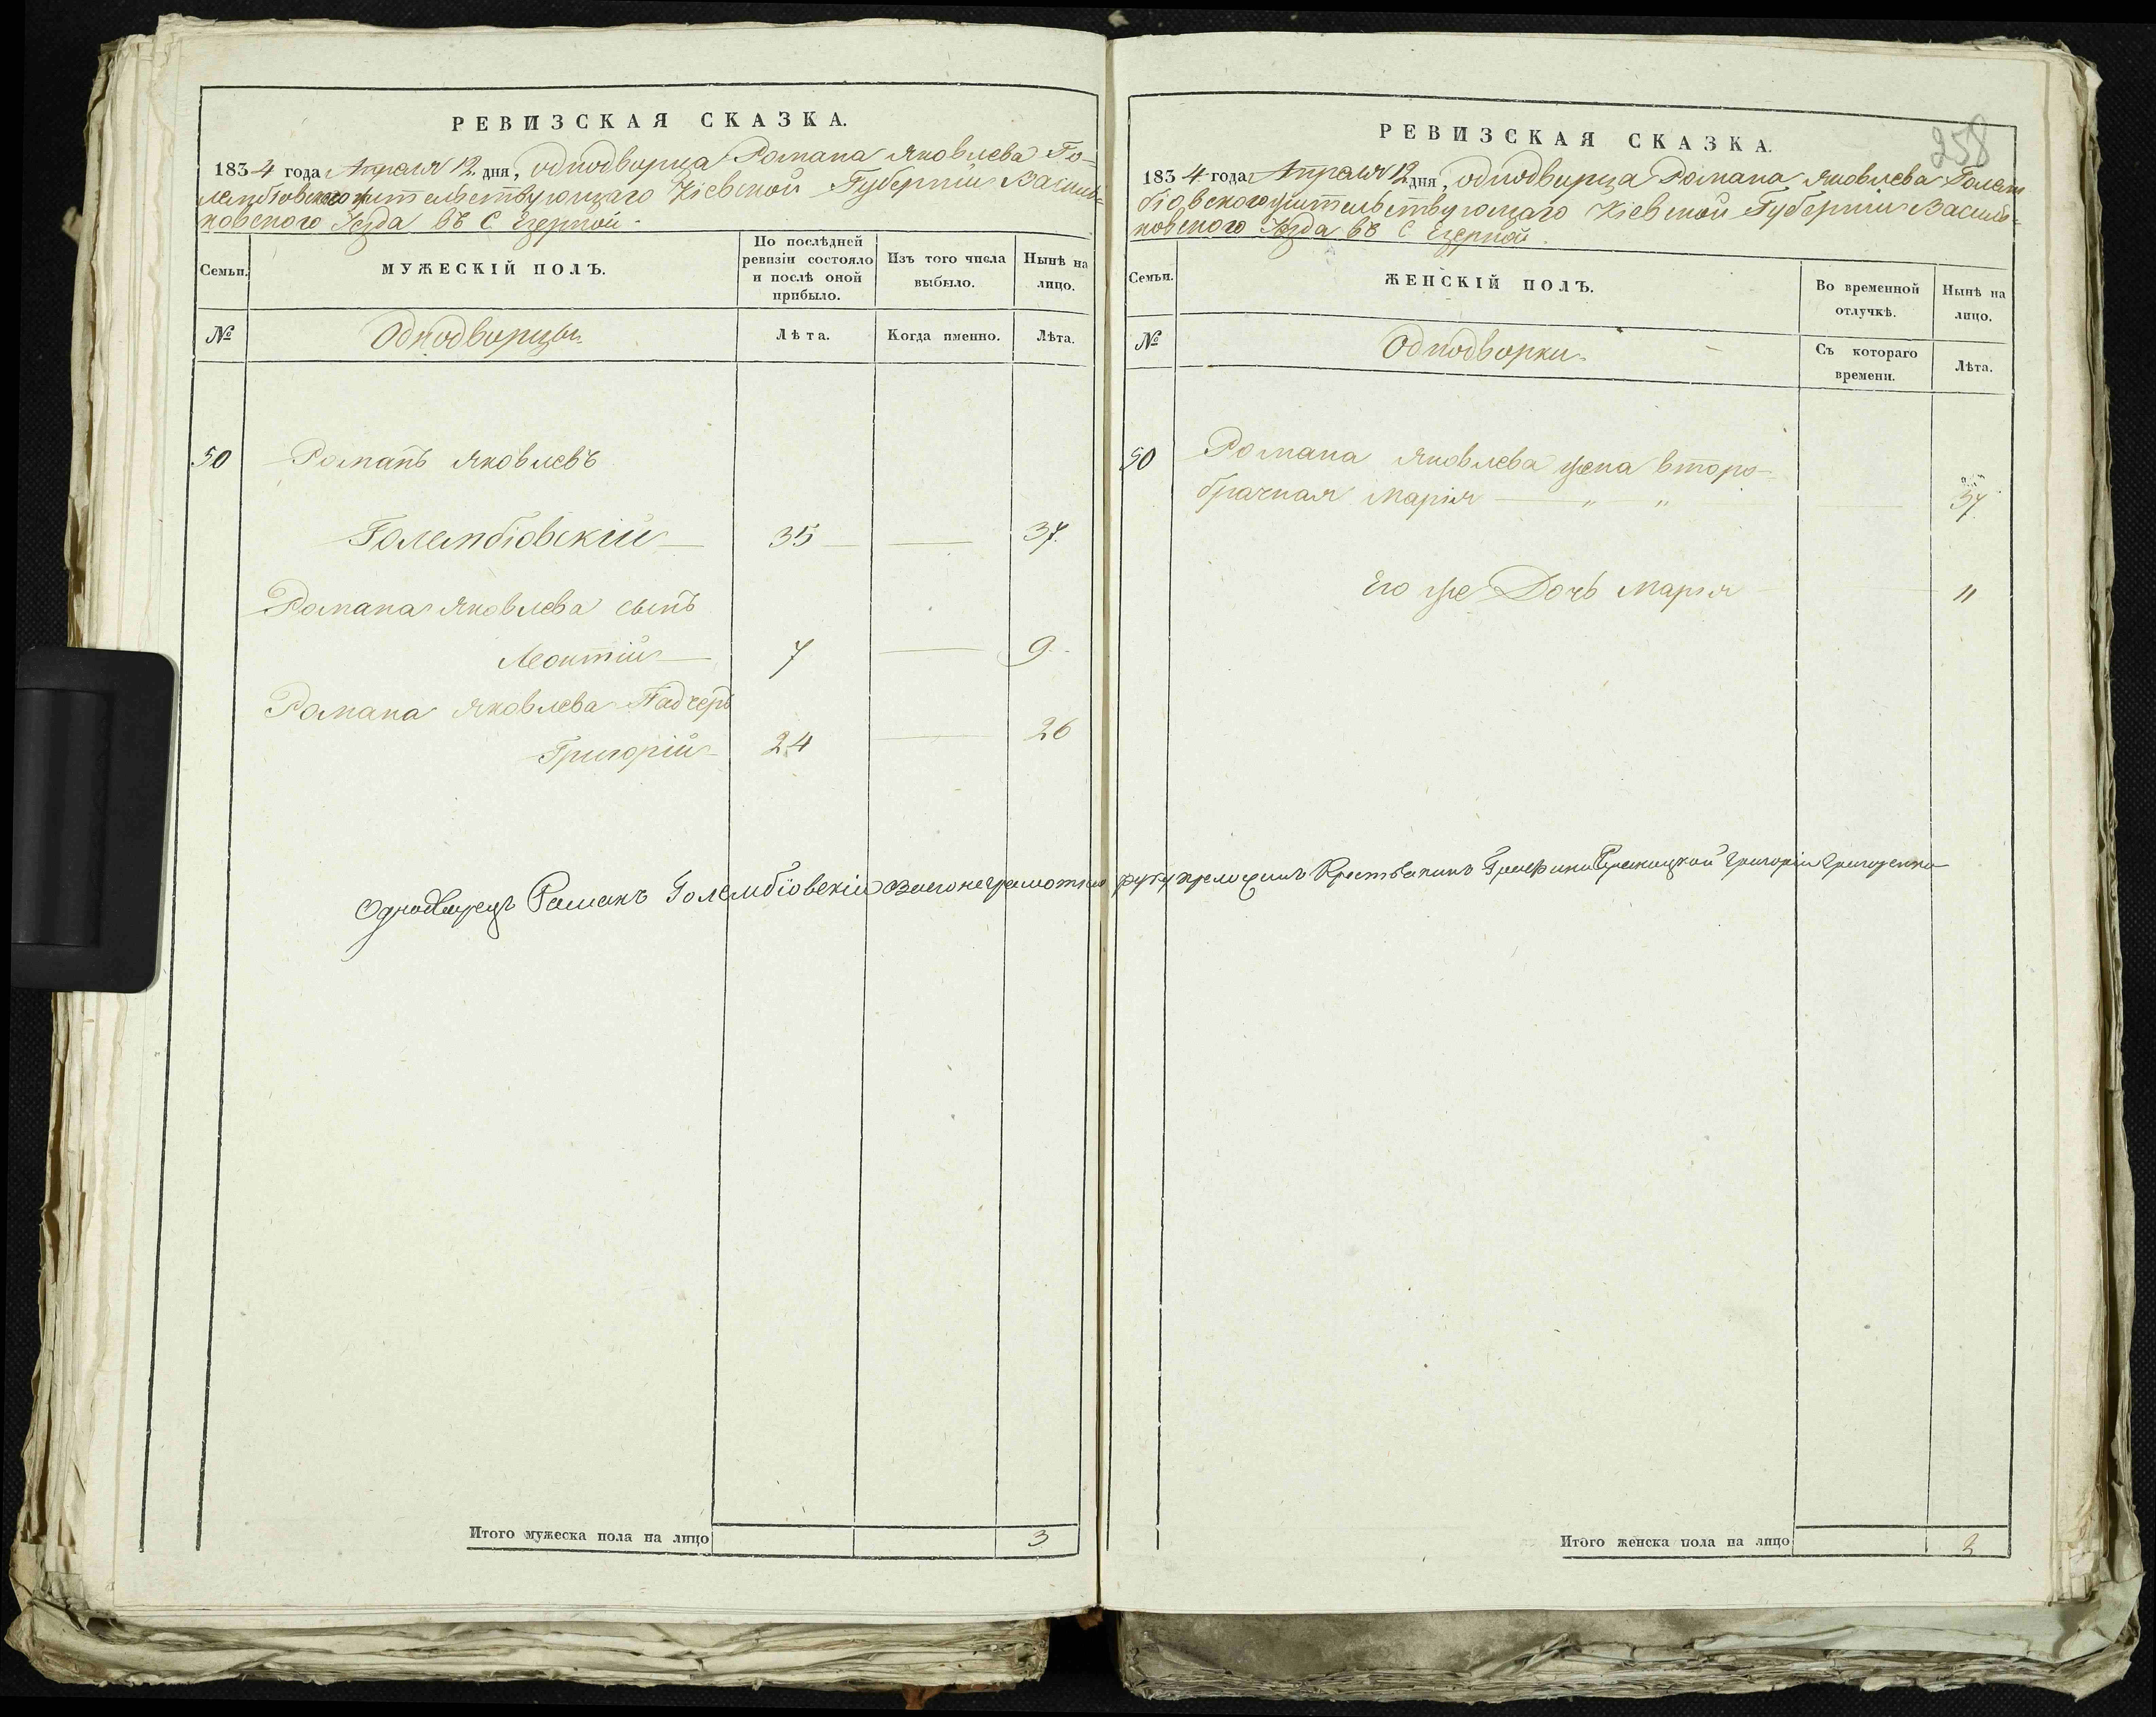 РЕВИЗСКАЯ СКАЗКА.
1834 года Апреля 12 дня, однодворца Романа Яковлева Го=
лембіовского жительствующаго Кіевской Губерніи Василь=
ковского Уезда въ С Езерной.
Семьи.
МУЖЕСКІЙ ПОЛЪ.
По послѣдней ревизіи состояло и послѣ оной прибыло.
Изъ того числа выбыло.
Нынѣ на лицо.
№
Однодворцы
Лѣта.
Когда именно.
Лѣта.
50 Романъ Яковлевъ
Голембіовскій 35 37.
Романа Яковлева сынъ
Леонтій 7 9.
Романа Яковлева Падчеръ
Григорій 24 26
Однодворецъ Романъ Голембіовскій
Итого мужеска пола на лицо 3
258
РЕВИЗСКАЯ СКАЗКА.
1834 года Апреля 12 дня, однодворца Романа Яковлева Голем
біовского жительствующаго Кіевской Губерніи Василь=
ковского Уезда въ С Езерной.
Семьи.
ЖЕНСКІЙ ПОЛЪ.
Во временной отлучкѣ.
Нынѣ на лицо.
№
Однодворки
Съ котораго времени.
Лѣта.
50 Романа Яковлева жена второ-
брачная Марія " " 37.
Его же Дочь Марія 11
руку приложилъ Григорій Григоренко
Итого женска пола на лицо 2